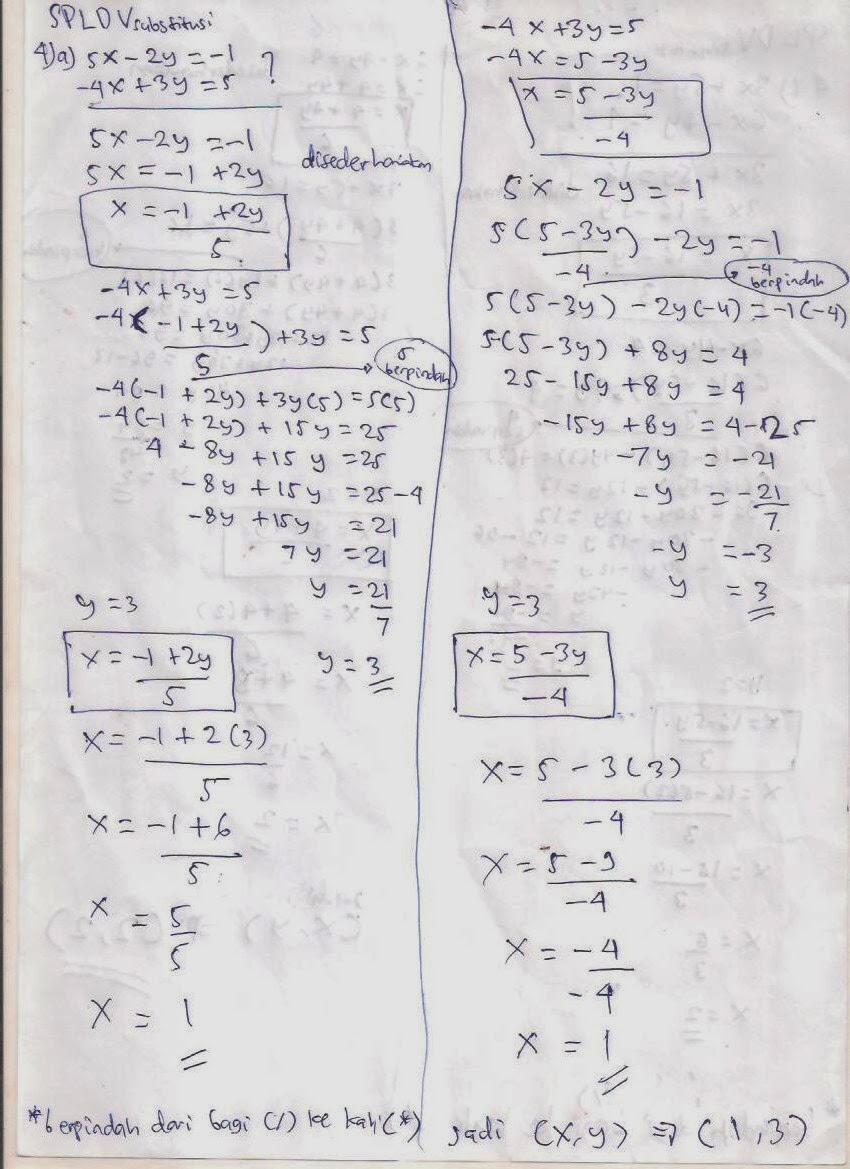 SPLDV substitusi
4)a) 5x - 2y = -1 ?
-4x + 3y = 5
5x - 2y = -1
5x = -1 + 2y
disederhanakan
x = -1 + 2y
5
-4x + 3y = 5
-4(-1 + 2y) + 3y = 5
5
5 berpindah
-4(-1 + 2y) + 3y(5) = 5(5)
-4(-1 + 2y) + 15y = 25
4 - 8y + 15y = 25
-8y + 15y = 25 - 4
-8y + 15y = 21
7y = 21
y = 21
7
y = 3
y = 3
x = -1 + 2y
5
x = -1 + 2(3)
5
x = -1 + 6
5
x = 5
5
x = 1
-4x + 3y = 5
-4x = 5 - 3y
x = 5 - 3y
-4
5x - 2y = -1
5(5 - 3y) - 2y = -1
-4
-4 berpindah
5(5 - 3y) - 2y(-4) = -1(-4)
5(5 - 3y) + 8y = 4
25 - 15y + 8y = 4
-15y + 8y = 4 - 25
-7y = -21
-y = -21
7
-y = -3
y = 3
y = 3
x = 5 - 3y
-4
x = 5 - 3(3)
-4
x = 5 - 9
-4
x = -4
-4
x = 1
*berpindah dari bagi (/) ke kali (*)
jadi (x, y) ⇒ (1, 3)